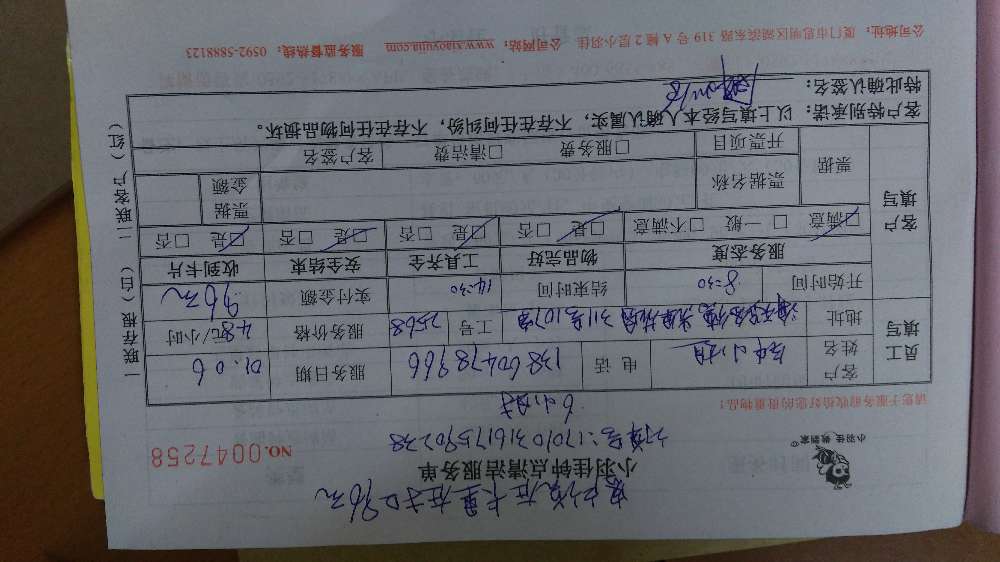 小羽佳钟点清洁服务单
小羽佳 做到家
NO.0047258
订单号:1701031617590238
6小时
请您于服务前收拾好您的贵重物品!
员工填写
客户姓名 小姐 电话 13860478966 服务日期 01.06
地址 311号107室 工号 2568 服务价格 48元/小时
开始时间 8:30 结束时间 14:30 实付金额 96元
客户填写
服务态度 物品完好 工具齐全 安全结束 收到卡片
□满意 □一般 □不满意 □是 □否 □是 □否 □是 □否 □是 □否
票据 票据名称 票据金额
开票项目 □服务费 □清洁费 客户签名
客户特别承诺:以上填写经本人确认属实,不存在任何纠纷,不存在任何物品损坏。
特此确认签名:
一联存根(白) 二联客户(红)
公司地址:厦门市思明区湖滨东路 319 号 A 幢 2 层小羽佳 公司网站:www.xiaoyujia.com 服务监督热线:0592-5888123